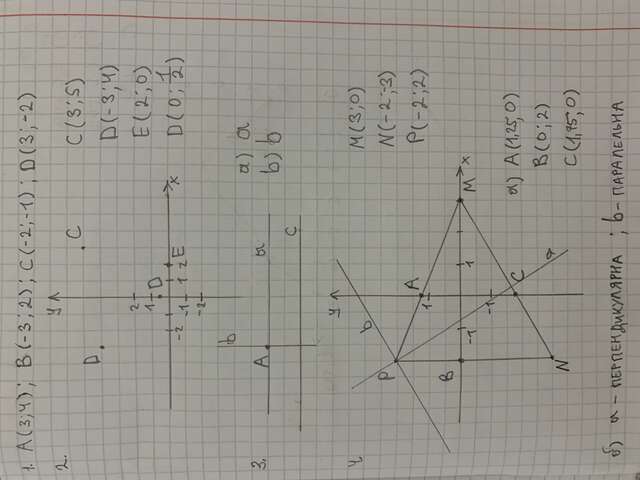 1. A(3;4); B(-3;2); C(-2;-1); D(3;-2)
2.
C(3;5)
D(-3;4)
E(2;0)
D(0;1/2)
y
C
D
2
1
D
E
x
-2
1
2
-1
-2
3.
b
A
a
c
a) a
b) b
4.
M(3;0)
N(-2;-3)
P(-2;2)
y
b
P
A
1
M
x
B
-1
1
-1
C
a
N
а) A(1,25;0)
B(0;2)
C(1,75;0)
б) a - ПЕРПЕНДИКУЛЯРНА ; b - ПАРАЛЕЛЬНА